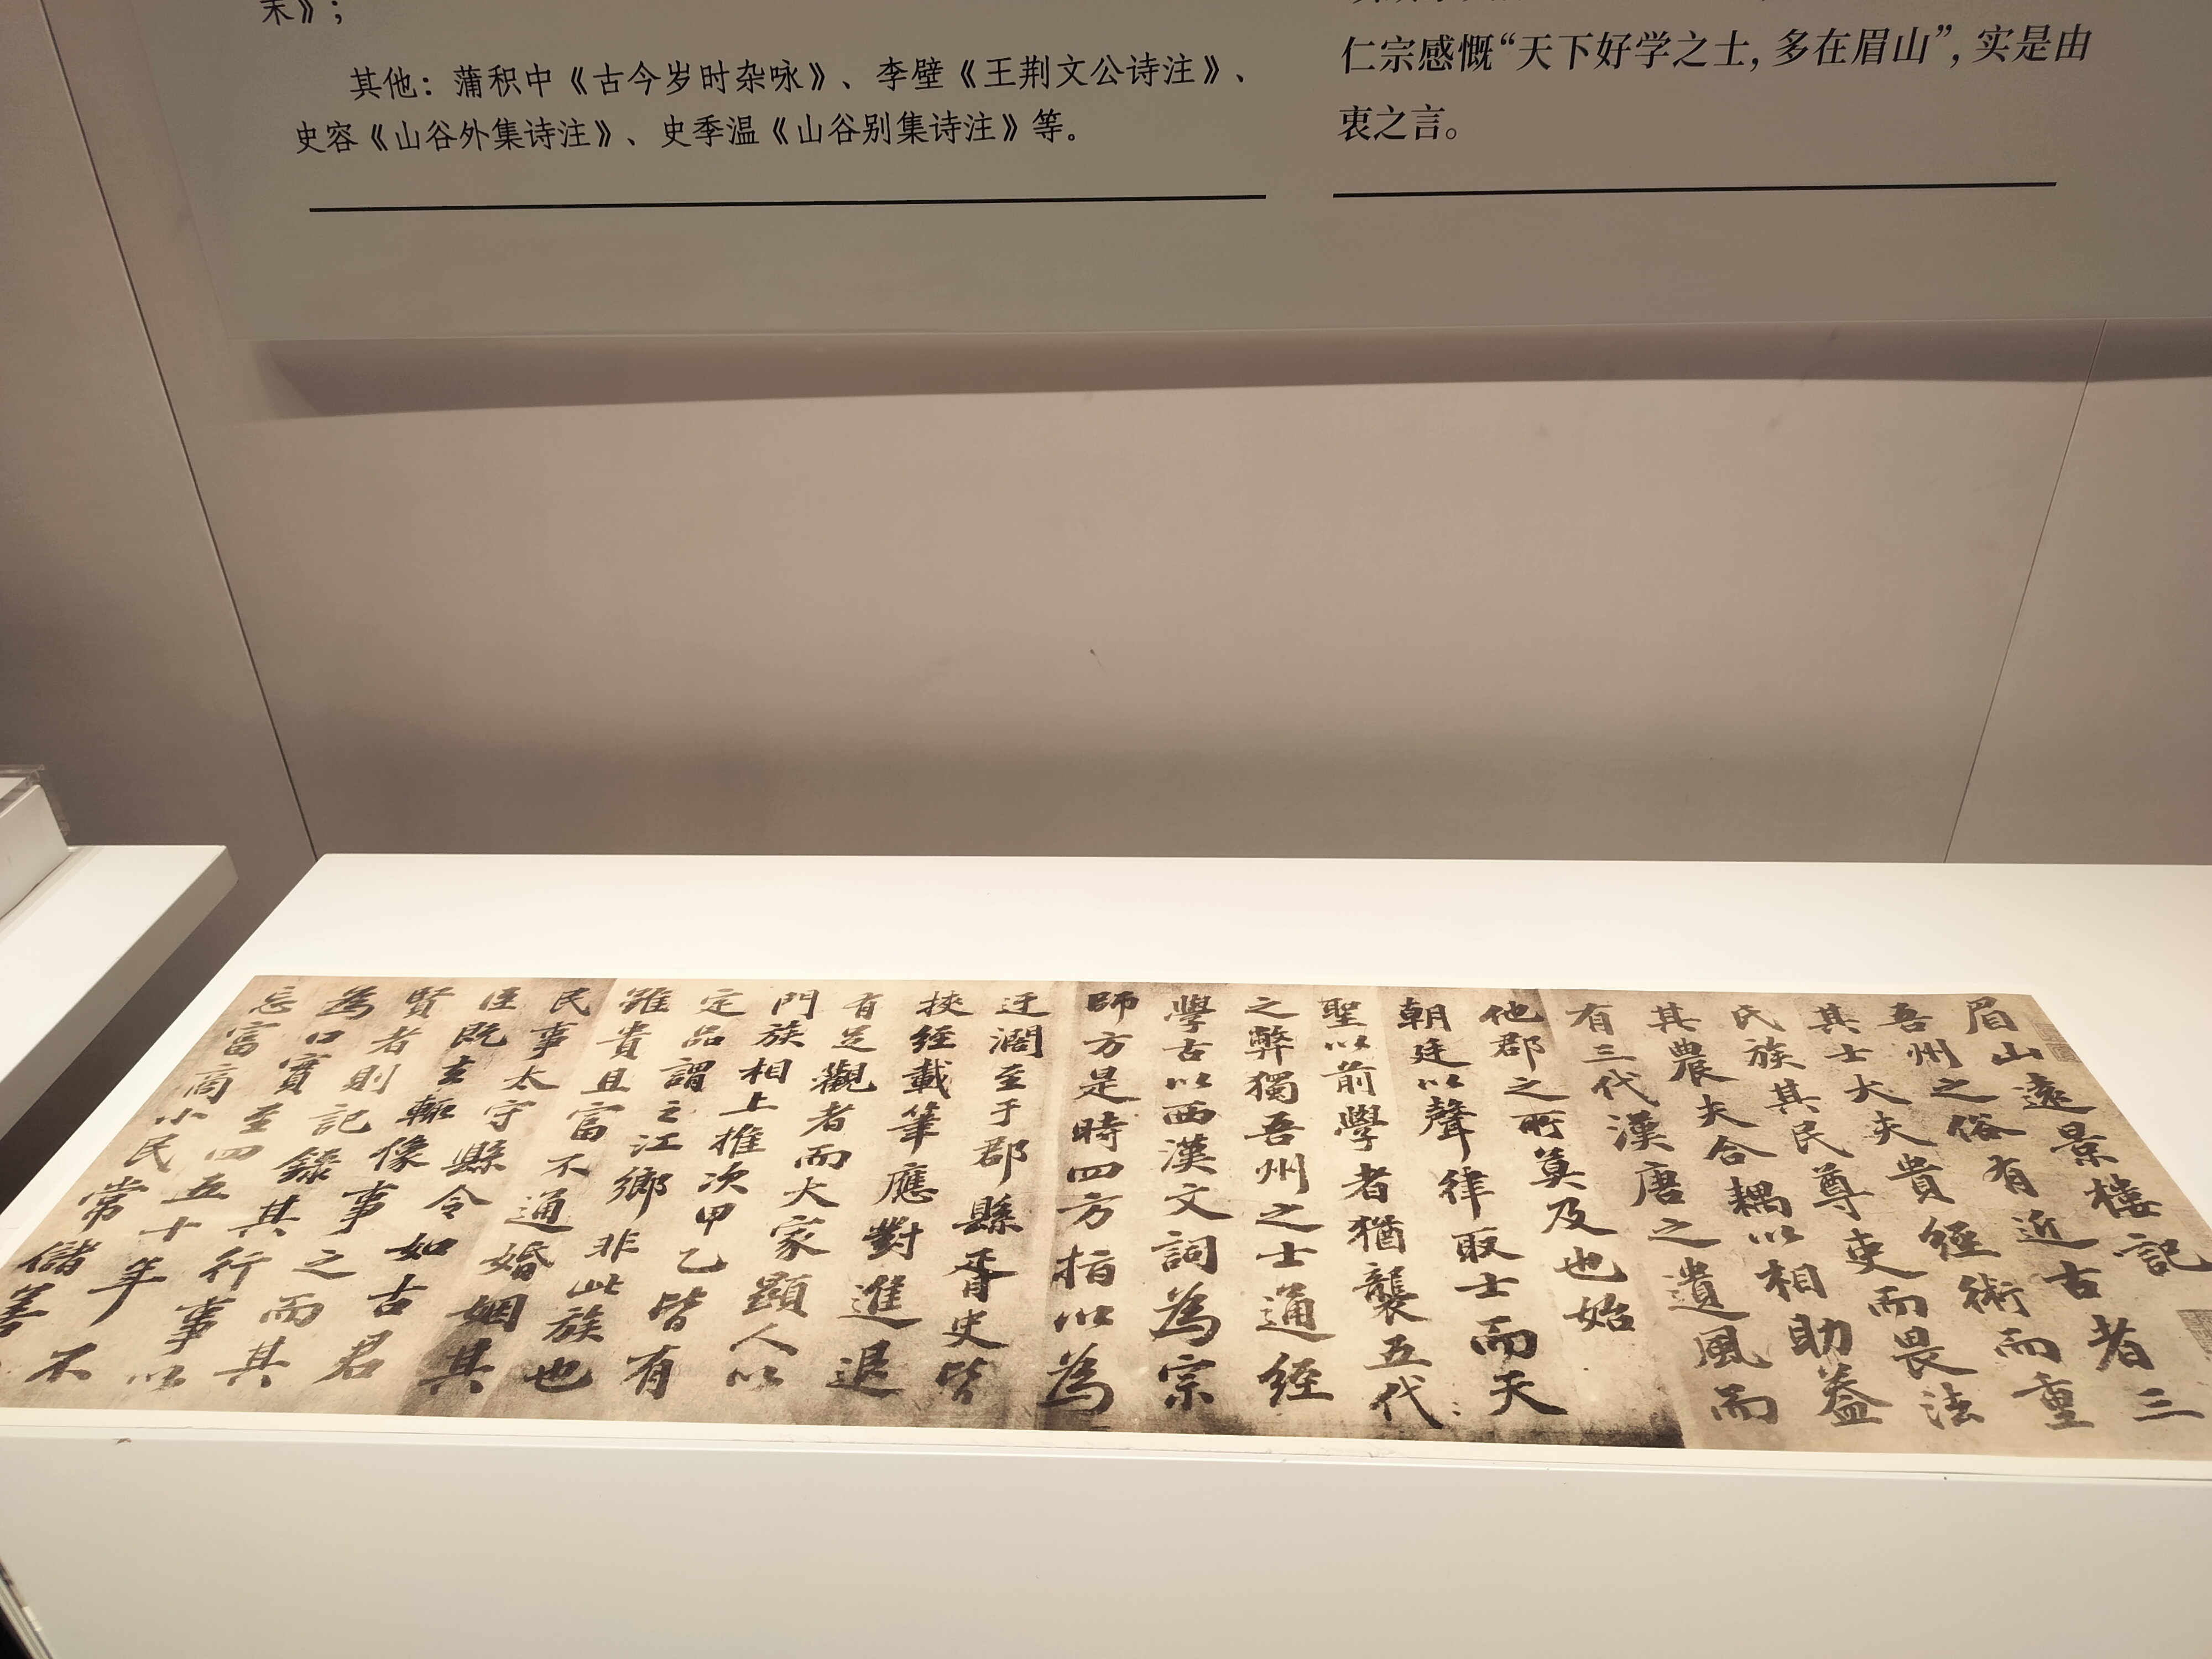 末》；
其他：蒲积中《古今岁时杂咏》、李壁《王荆文公诗注》、
史容《山谷外集诗注》、史季温《山谷别集诗注》等。
仁宗感慨“天下好学之士，多在眉山”，实是由
衷之言。
眉山遠景樓記
吾州之俗有近古者三
其士大夫貴經術而重
氏族其民尊吏而畏法
其農夫合耦以相助蓋
有三代漢唐之遺風而
他郡之所莫及也始
朝廷以聲律取士而天
聖以前學者猶襲五代
之弊獨吾州之士通經
學古以西漢文詞為宗
師方是時四方指以為
迂濶至于郡縣胥史皆
挾經載筆應對進退
有足觀者而大家顯人以
門族相上推次甲乙皆有
定品謂之江鄉非此族也
雖貴且富不通婚姻其
民事太守縣令如古君
臣既去輒像事之而其
賢者則記錄其行事以
為口實至四五十年不
忘富商小民常儲善